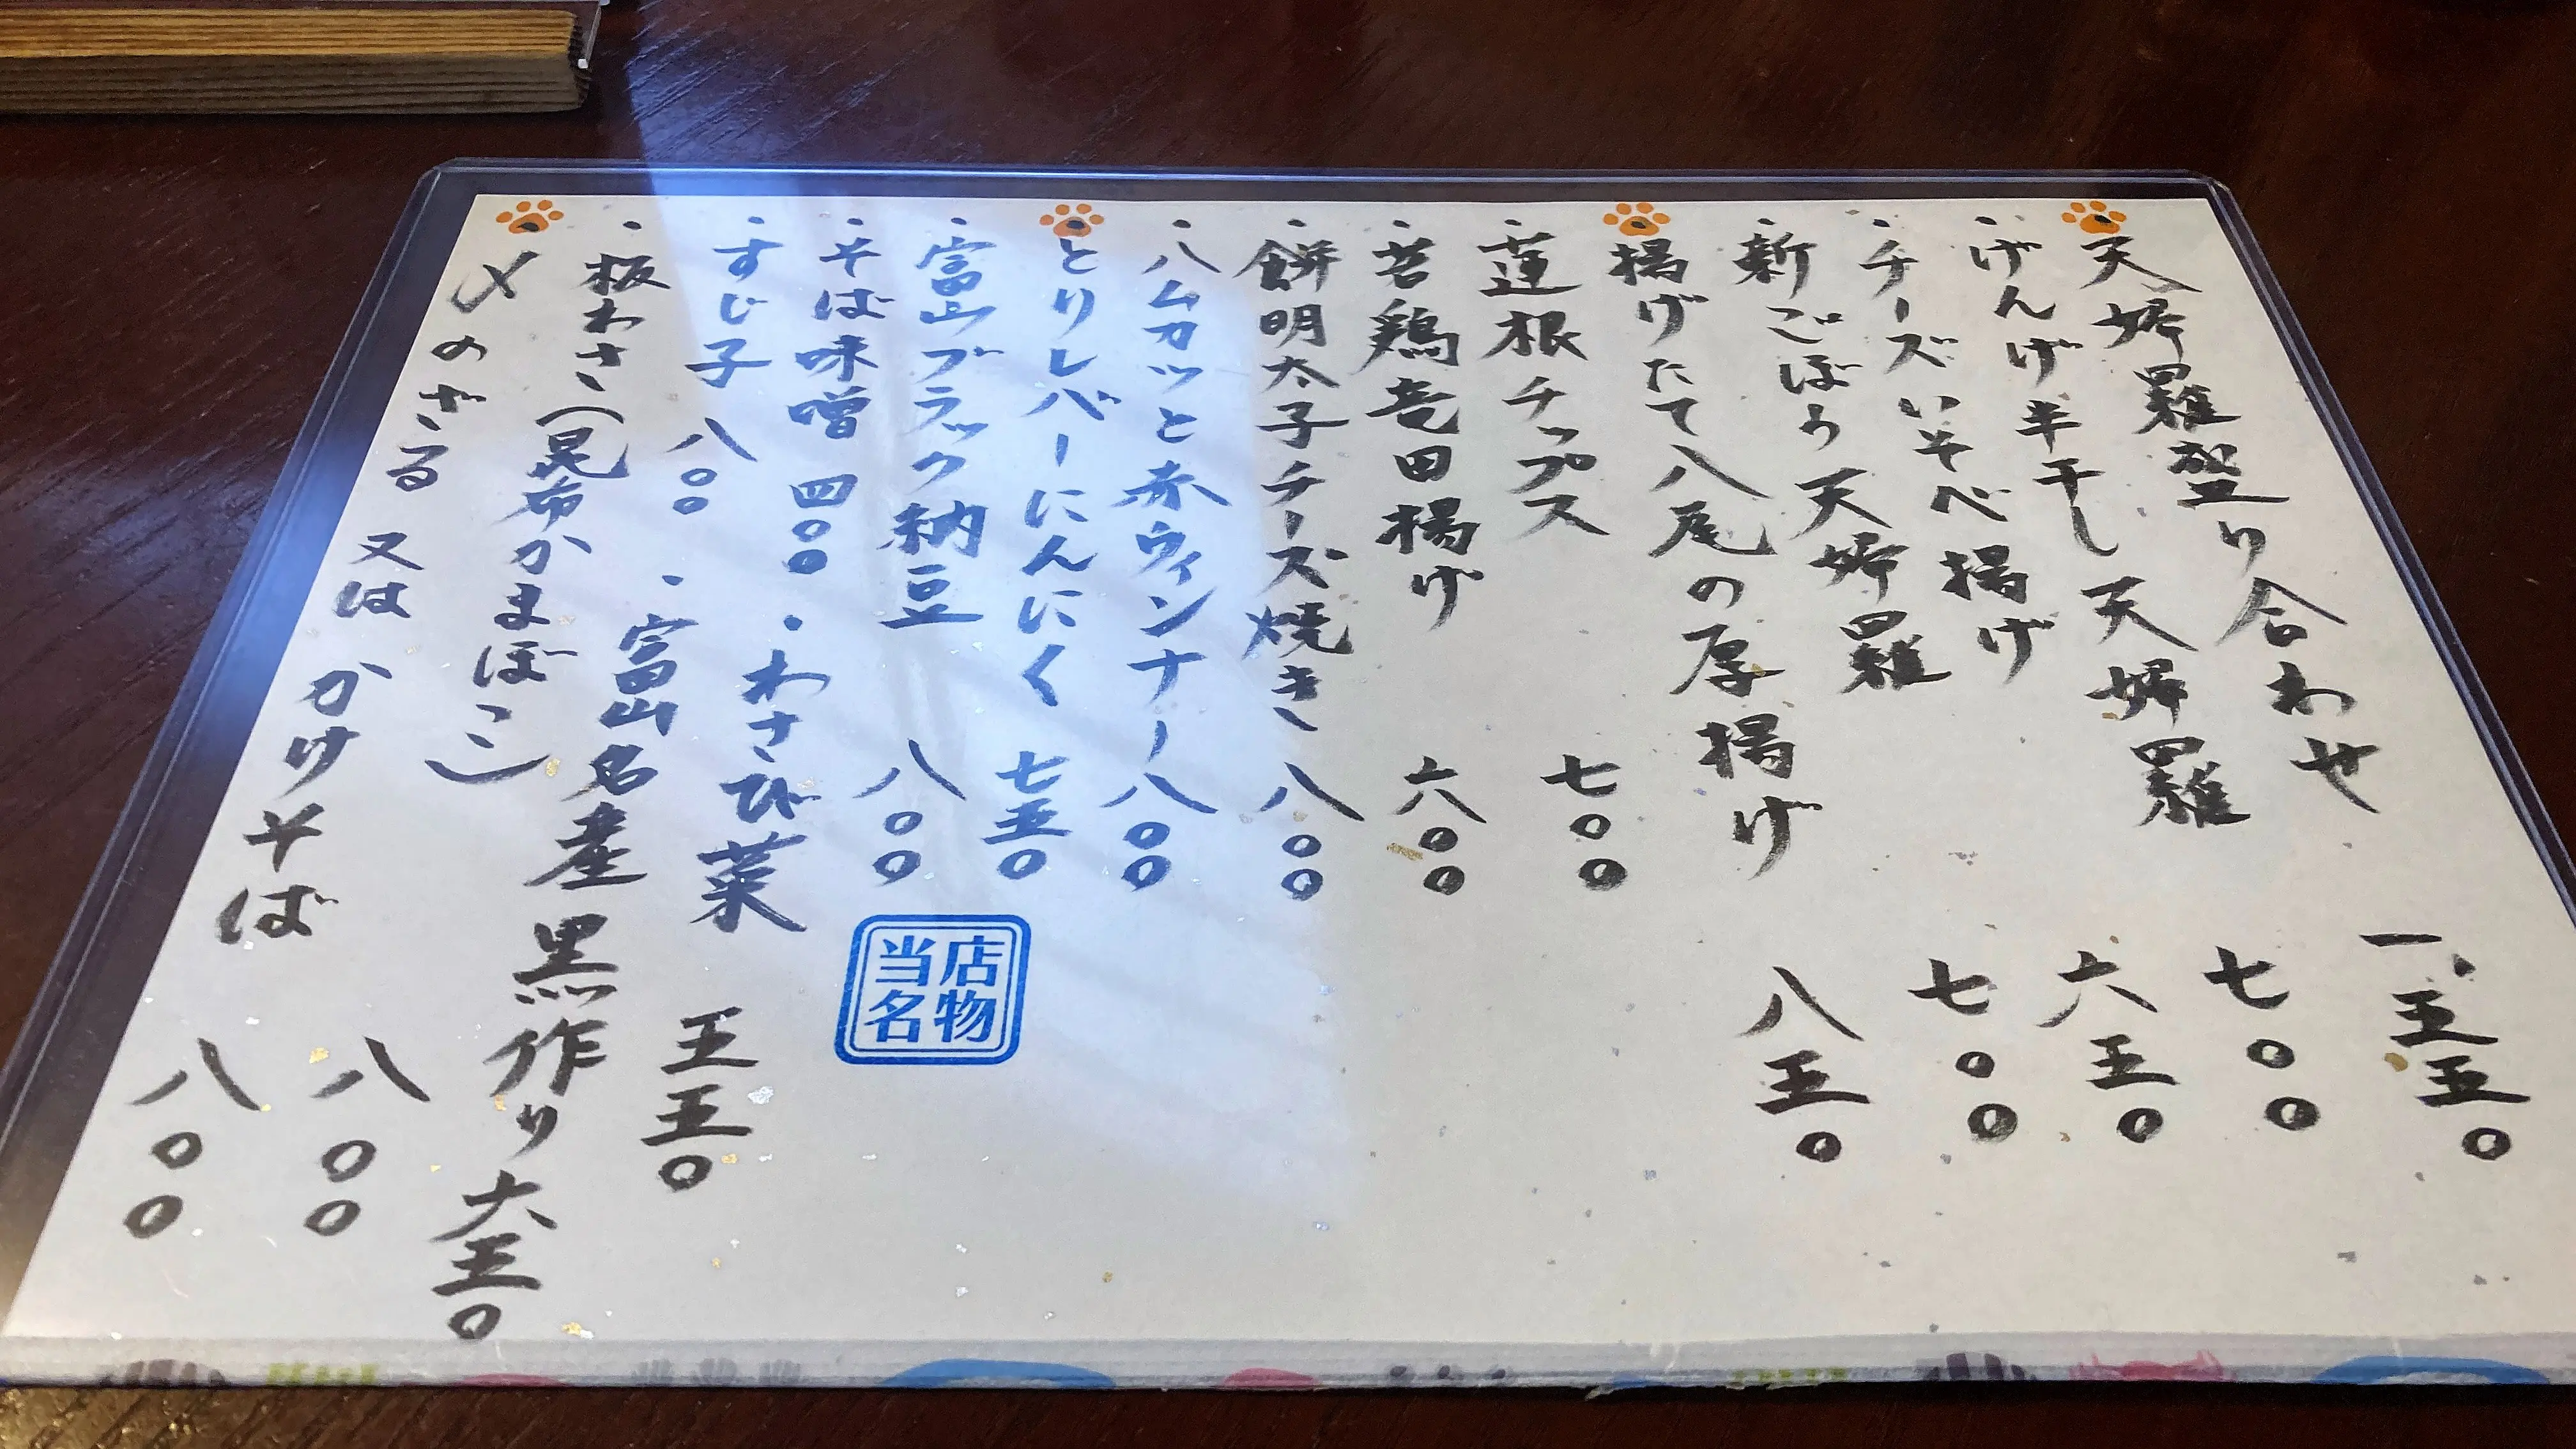 ・天婦羅盛り合わせ 一、五五〇
・げんげ半干し天婦羅 七〇〇
・チーズいそべ揚げ 六五〇
・新ごぼう天婦羅 七〇〇
・揚げたて八尾の厚揚げ 八五〇
・蓮根チップス 七〇〇
・若鶏竜田揚げ 六〇〇
・餅明太子チーズ焼き 八〇〇
・ハムカツと赤ウィンナー 八〇〇
・とりレバーにんにく 七五〇
・富山ブラック納豆 八〇〇
当店名物
・そば味噌 四〇〇 ・わさび菜 五五〇
・すじ子 八〇〇 ・富山名産 黒作り 六五〇
・板わさ(昆布かまぼこ) 八〇〇
・〆のざる 又は かけそば 八〇〇